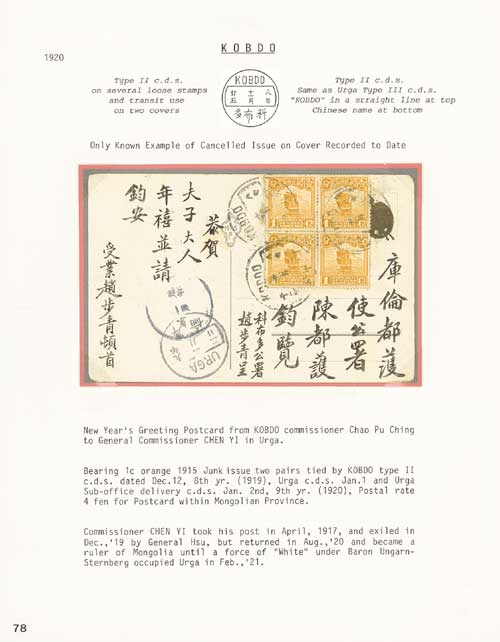 KOBDO
1920
Type II c.d.s.
on several loose stamps
and transit use
on two covers
KOBDO
八年
十二月
廿五
科布多
Type II c.d.s.
Same as Urga Type III c.d.s.
"KOBDO" in a straight line at top
Chinese name at bottom
Only Known Example of Cancelled Issue on Cover Recorded to Date
庫倫都護
使公署
陳都護
鈞覽
科布多公署
趙步青呈
恭賀
夫子大人
年禧並請
鈞安
受業趙步青頓首
KOBDO
KOBDO
URGA
New Year's Greeting Postcard from KOBDO commissioner Chao Pu Ching
to General Commissioner CHEN YI in Urga.
Bearing 1c orange 1915 Junk issue two pairs tied by KOBDO type II
c.d.s. dated Dec.12, 8th yr. (1919), Urga c.d.s. Jan.1 and Urga
Sub-office delivery c.d.s. Jan. 2nd, 9th yr. (1920), Postal rate
4 fen for Postcard within Mongolian Province.
Commissioner CHEN YI took his post in April, 1917, and exiled in
Dec.,'19 by General Hsu, but returned in Aug.,'20 and became a
ruler of Mongolia until a force of "White" under Baron Ungarn-
Sternberg occupied Urga in Feb.,'21.
78